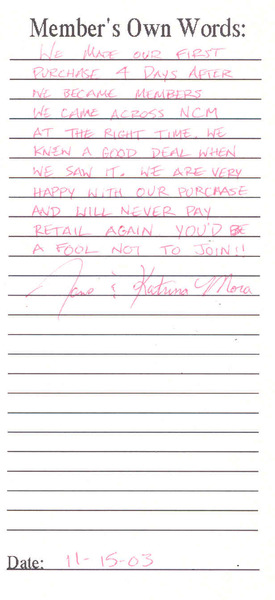 Member's Own Words:
WE MADE OUR FIRST
PURCHASE 4 DAYS AFTER
WE BECAME MEMBERS
WE CAME ACROSS NCM
AT THE RIGHT TIME. WE
KNEW A GOOD DEAL WHEN
WE SAW IT. WE ARE VERY
HAPPY WITH OUR PURCHASE
AND WILL NEVER PAY
RETAIL AGAIN YOU'D BE
A FOOL NOT TO JOIN!!
& Katrina Mora
Date: 11-15-03